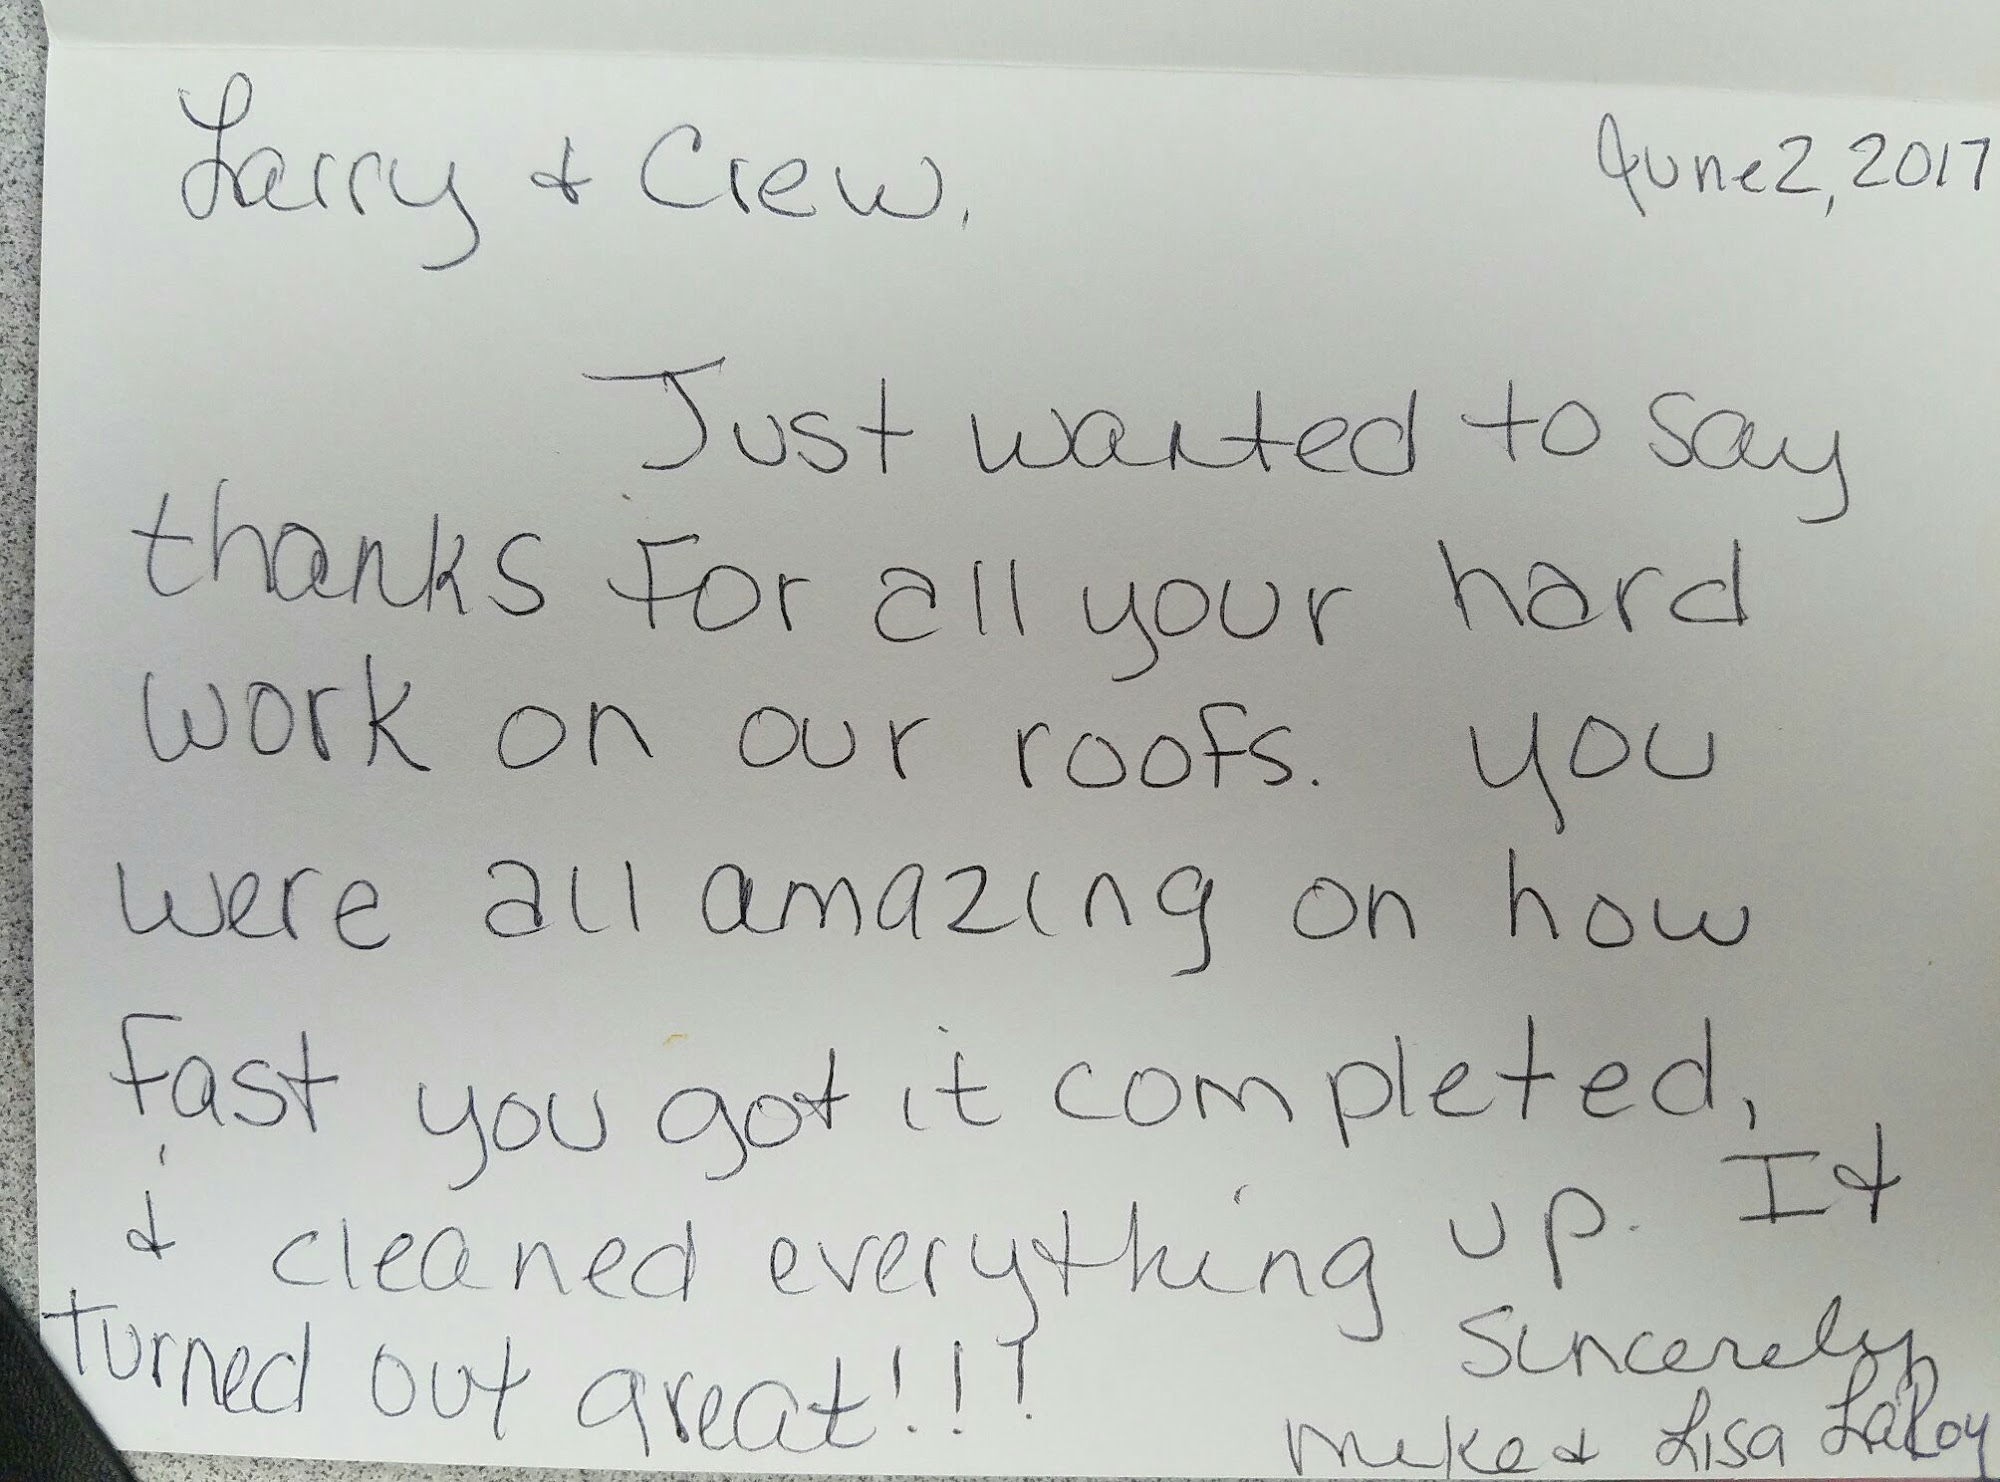 Larry & Crew,
June 2, 2017
Just wanted to say
thanks for all your hard
work on our roofs. you
were all amazing on how
fast you got it completed,
& cleaned everything up. It
turned out great!!!
Sincerely
Mike & Lisa LaRoy